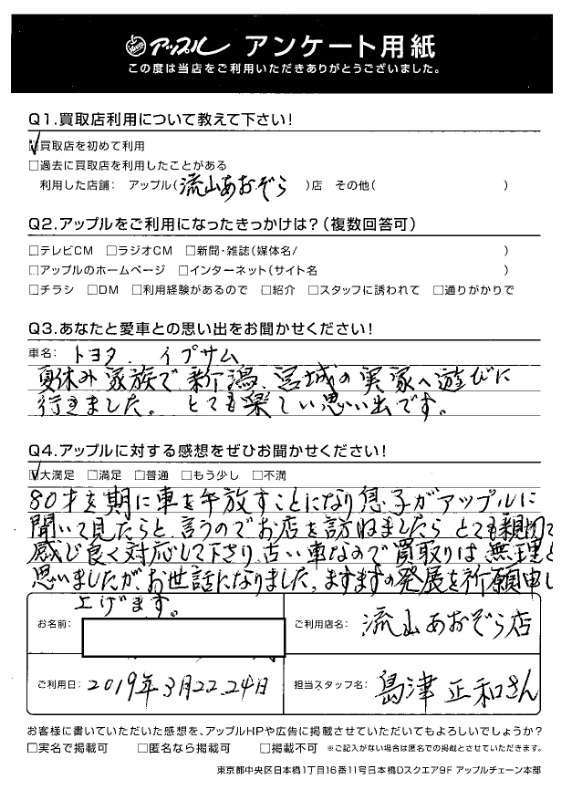 アップル アンケート用紙
この度は当店をご利用いただきありがとうございました。
Q1.買取店利用について教えて下さい!
☑買取店を初めて利用
□過去に買取店を利用したことがある
利用した店舗: アップル(流山あおぞら)店 その他( )
Q2.アップルをご利用になったきっかけは?(複数回答可)
□テレビCM □ラジオCM □新聞・雑誌(媒体名/ )
□アップルのホームページ □インターネット(サイト名 )
□チラシ □DM □利用経験があるので □紹介 □スタッフに誘われて □通りがかりで
Q3.あなたと愛車との思い出をお聞かせください!
車名: トヨタ. イプサム
夏休み家族で新潟、宮城の実家へ遊びに
行きました。とても楽しい思い出です。
Q4.アップルに対する感想をぜひお聞かせください!
☑大満足 □満足 □普通 □もう少し □不満
80才を期に車を手放すことになり息子がアップルに
聞いて見たらと言うのでお店を訪ねましたらとても親切で
感じ良く対応して下さり、古い車なので買取りは無理と
思いましたがお世話になりました。ますますの発展を祈願申し
上げます。
お名前:
ご利用店名: 流山あおぞら店
ご利用日: 2019年3月22.24日
担当スタッフ名: 島津正和さん
お客様に書いていただいた感想を、アップルHPや広告に掲載させていただいてもよろしいでしょうか?
□実名で掲載可 □匿名なら掲載可 □掲載不可 ※ご記入がない場合は匿名での掲載とさせていただきます。
東京都中央区日本橋1丁目16番11号日本橋Dスクエア9F アップルチェーン本部